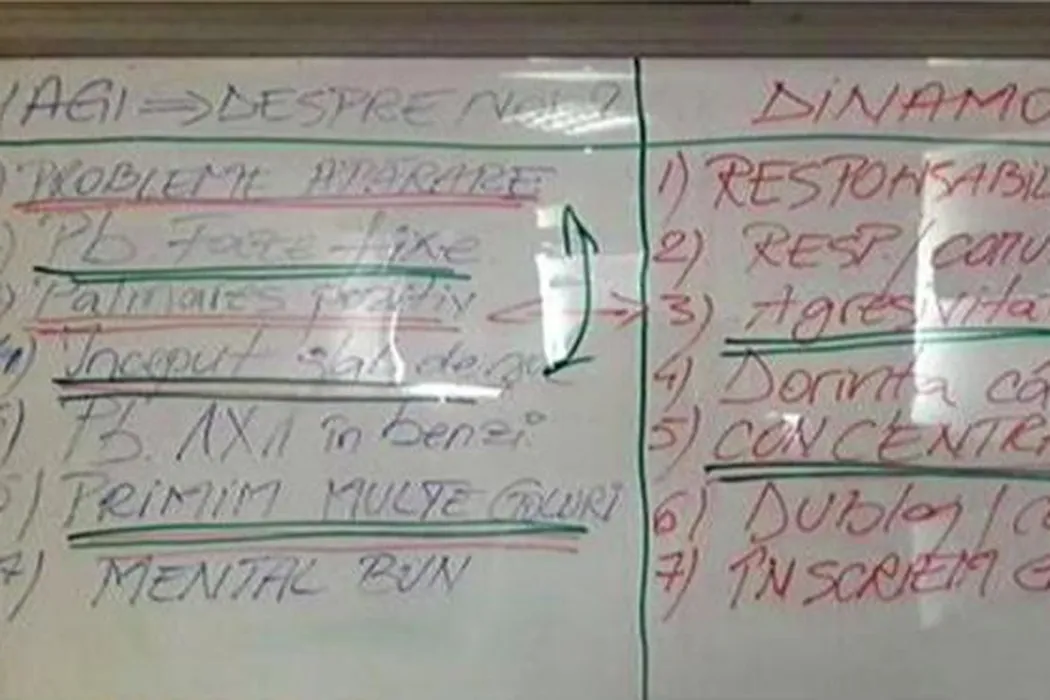 IAGI ⇒ DESPRE NOI?
1) PROBLEME APARARE
2) Pb. Faze fixe
3) Palmares pozitiv
4) Inceput slab de
5) Pb. 1X1 în benzi
6) PRIMIM MULTE GOLURI
7) MENTAL BUN
DINAMO
1) RESPONSABIL
2) RESP./
3) Agresivita
4) Dorinta câ
5) CONCENTR
6) Dublaj / C
7) ÎNSCRIEM G